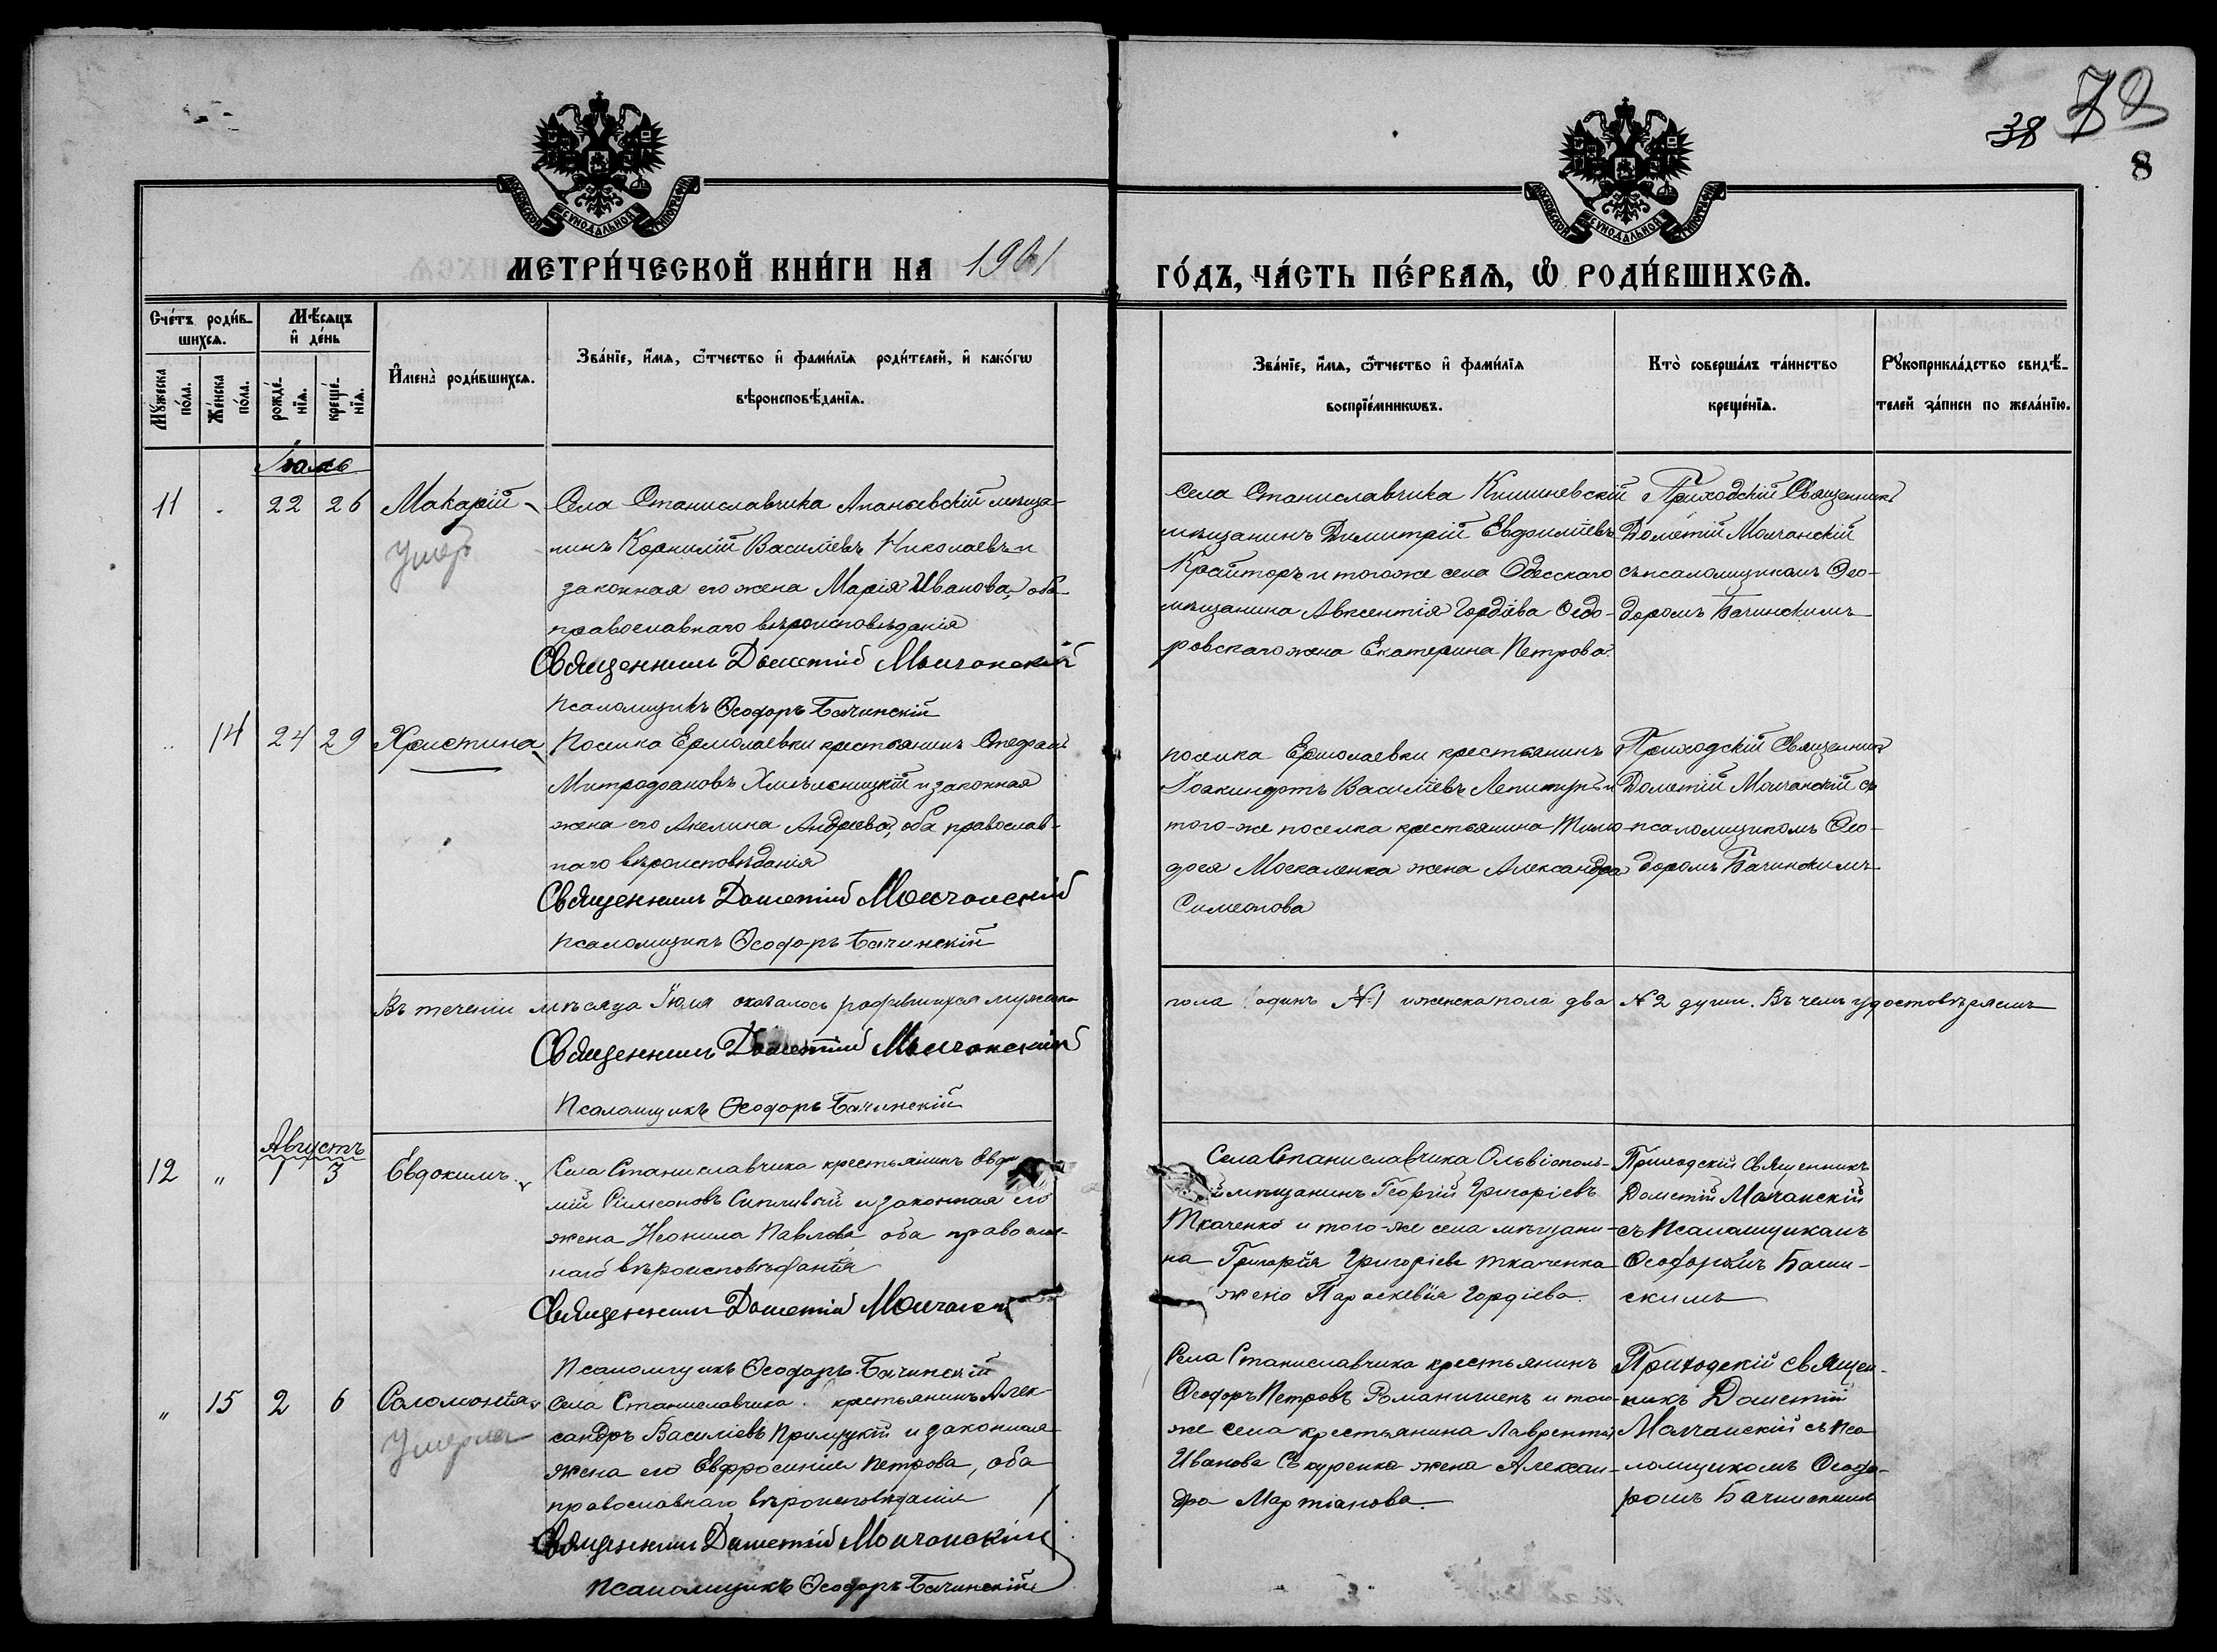 38 72
8
МОСКОВСКОЙ СѴНОДАЛЬНОЙ ТИПОГРАФІИ
МОСКОВСКОЙ СѴНОДАЛЬНОЙ ТИПОГРАФІИ
МЕТРИ́ЧЕСКОЙ КНИ́ГИ НА 1901
ГО́ДЪ, ЧА́СТЬ ПЕ́РВАѦ, Ѡ҆ РОДИ́ВШИХСѦ.
Сче́тъ роди́в-
шихсѧ.
Мѣ́сѧцъ
и҆ де́нь
Мꙋ́жеска
по́ла.
Же́нска
по́ла.
рожде́-
нїѧ.
креще́-
нїѧ.
И҆мена̀ роди́вшихсѧ.
Зва́нїе, и҆́мѧ, ѻ҆́тчество и҆ фами́лїѧ роди́телей, и҆ како́гѡ
вѣроисповѣ́данїѧ.
Зва́нїе, и҆́мѧ, ѻ҆́тчество и҆ фами́лїѧ
воспрїе́мникѡвъ.
Кто̀ соверша́лъ та́инство
креще́нїѧ.
Рꙋкоприкла́дство свидѣ́-
телей за́писи по жела́нїю.
Іюль
11 . 22 26 Макарій
Умер
Села Станиславчика Ананьевскій мѣща-
нинъ Корнилій Василіевъ Николаевъ и
законная его жена Марія Иванова, оба
православнаго вѣроисповѣданія
Священникъ Дометій Молчанскій
Псаломщикъ Ѳеодоръ Бачинскій
Села Станиславчика Кишиневскій
мѣщанинъ Димитрій Евфиміевъ
и тогоже села Одесскаго
мѣщанина Авксентія Гордіева Ѳедо-
ровскаго жена Екатерина Петрова.
Приходскій Священникъ
Дометій Молчанскій
съ псаломщикомъ Ѳео-
доромъ Бачинскимъ
" 14 24 29 Христина
Поселка Ермолаевки крестьянинъ Стефанъ
Митрофановъ Хмѣльницкій и законная
жена его Акелина Андреева, оба православ-
наго вѣроисповѣданія
Священникъ Дометій Молчанскій
Псаломщикъ Ѳеодоръ Бачинскій
поселка Ермолаевки крестьянинъ
Іоакинфъ Василіевъ и
того-же поселка крестьянина Тимо-
фея Москаленка жена Александра
Симеонова
Приходскій Священникъ
Дометій Молчанскій съ
псаломщикомъ Ѳео-
доромъ Бачинскимъ
Въ теченіи мѣсяца Іюля оказалось родившихся мужска
пола одинъ №1 и женска пола два №2 души. Въ чемъ удостовѣряемъ
Священникъ Дометій Молчанскій
Псаломщикъ Ѳеодоръ Бачинскій
Августъ
12 " 1 3 Евдокимъ
Села Станиславчика крестьянинъ Евфи
мій Симеоновъ Сипливый и законная его
жена Неонила Павлова оба православ-
наго вѣроисповѣданія
Священникъ Дометій Молчанск
Псаломщикъ Ѳеодоръ Бачинскій
Села Станиславчика Ольвіополь-
й мѣщанинъ Георгій Григоріевъ
Ткаченко и того-же села мѣщани-
на Григорія Григоріева Ткаченка
жена Параскевія Гордіева
Приходскій Священникъ
Дометій Молчанскій
съ Псаломщикомъ
Ѳеодоромъ Бачин-
скимъ
" 15 2 6 Соломонія
Умерла
Села Станиславчика крестьянинъ Алек-
сандръ Василіевъ Прилуцкій и законная
жена его Евфросинія Петрова, оба
православнаго вѣроисповѣданія
Священникъ Дометій Молчанскій
Псаломщикъ Ѳеодоръ Бачинскій
Села Станиславчика крестьянинъ
Ѳеодоръ Петровъ Романишенъ и того-
же села крестьянина Лаврентія
Иванова Скуренка жена Алексан-
дра Мартіанова.
Приходскій Священ-
никъ Дометій
Молчанскій съ Пса
ломщикомъ Ѳеодо-
ромъ Бачинскимъ